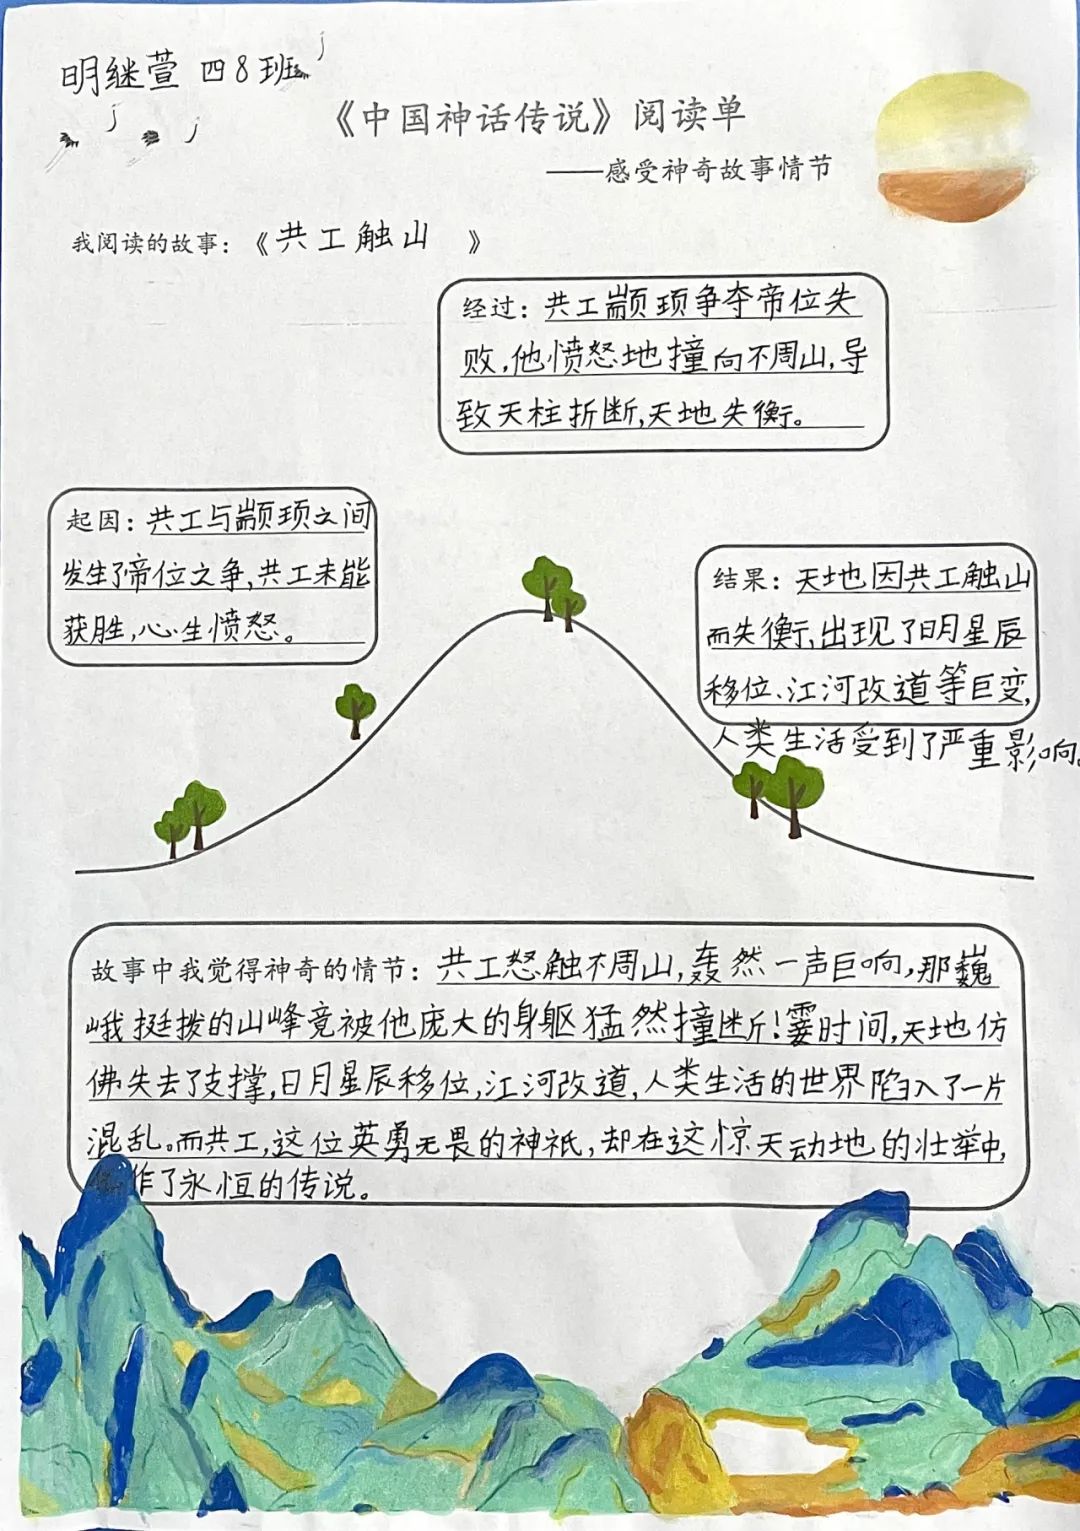 明继萱 四8班
《中国神话传说》阅读单
——感受神奇故事情节
我阅读的故事：《共工触山 》
经过：共工颛顼争夺帝位失
败，他愤怒地撞向不周山，导
致天柱折断，天地失衡。
起因：共工与颛顼之间
发生了帝位之争，共工未能
获胜，心生愤怒。
结果：天地因共工触山
而失衡，出现了明星辰
移位、江河改道等巨变，
人类生活受到了严重影响。
故事中我觉得神奇的情节：共工怒触不周山，轰然一声巨响，那巍
峨挺拨的山峰竟被他庞大的身躯猛然撞断！霎时间，天地仿
佛失去了支撑，日月星辰移位，江河改道，人类生活的世界陷入了一片
混乱。而共工，这位英勇无畏的神祇，却在这惊天动地的壮举中，
作了永恒的传说。